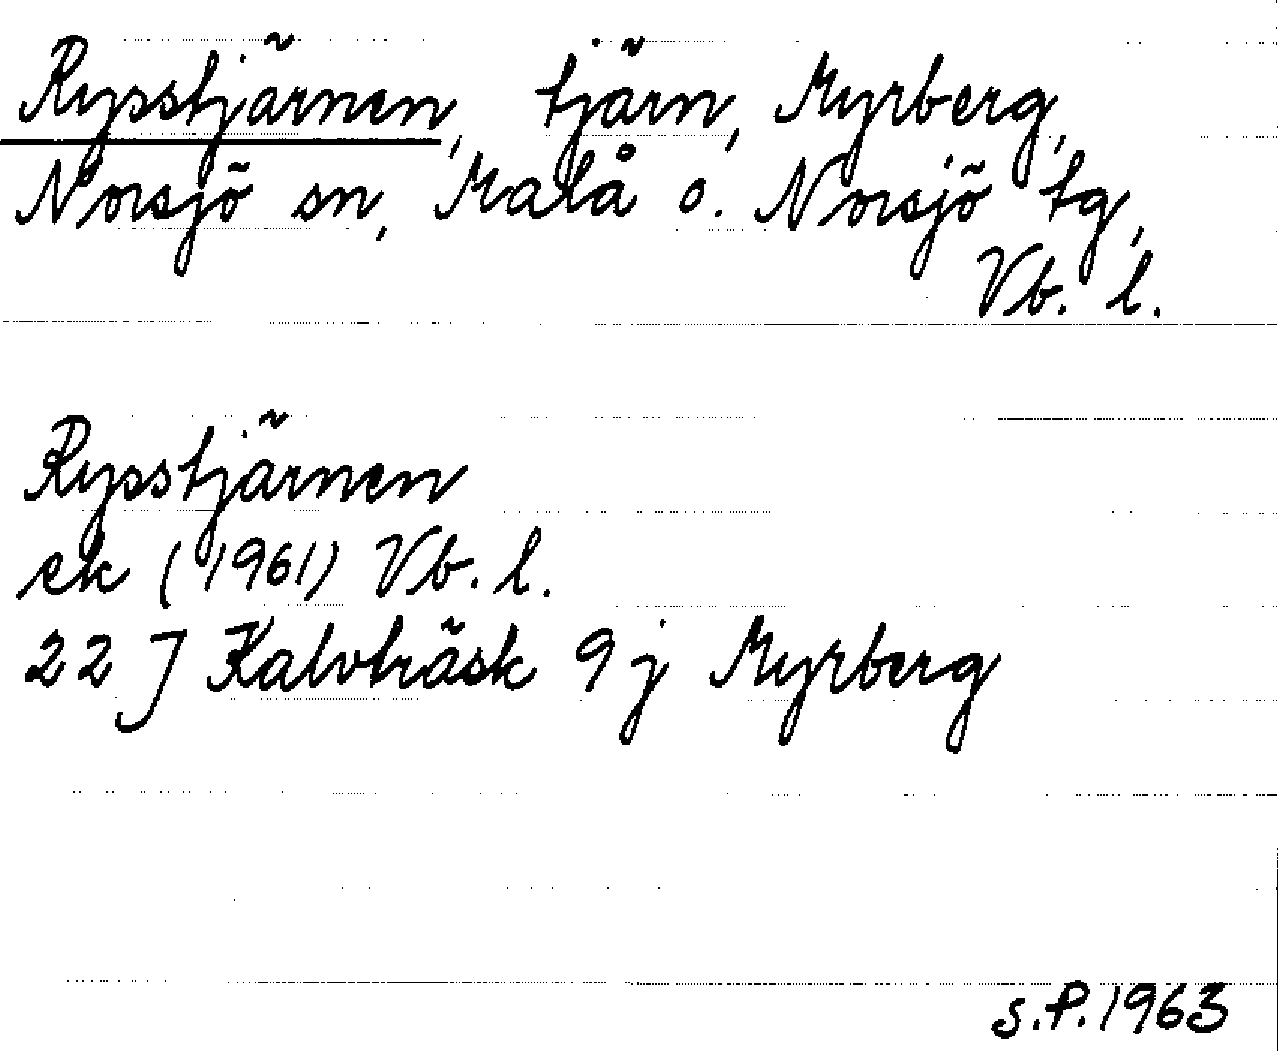 Rysstjärnen, tjärn, Myrberg,
Norsjö sn, Malå o. Norsjö tg,
Vb. l.
Rysstjärnen
ek (1961) Vb. l.
22 J Kalvträsk 9 j Myrberg
S.P. 1963